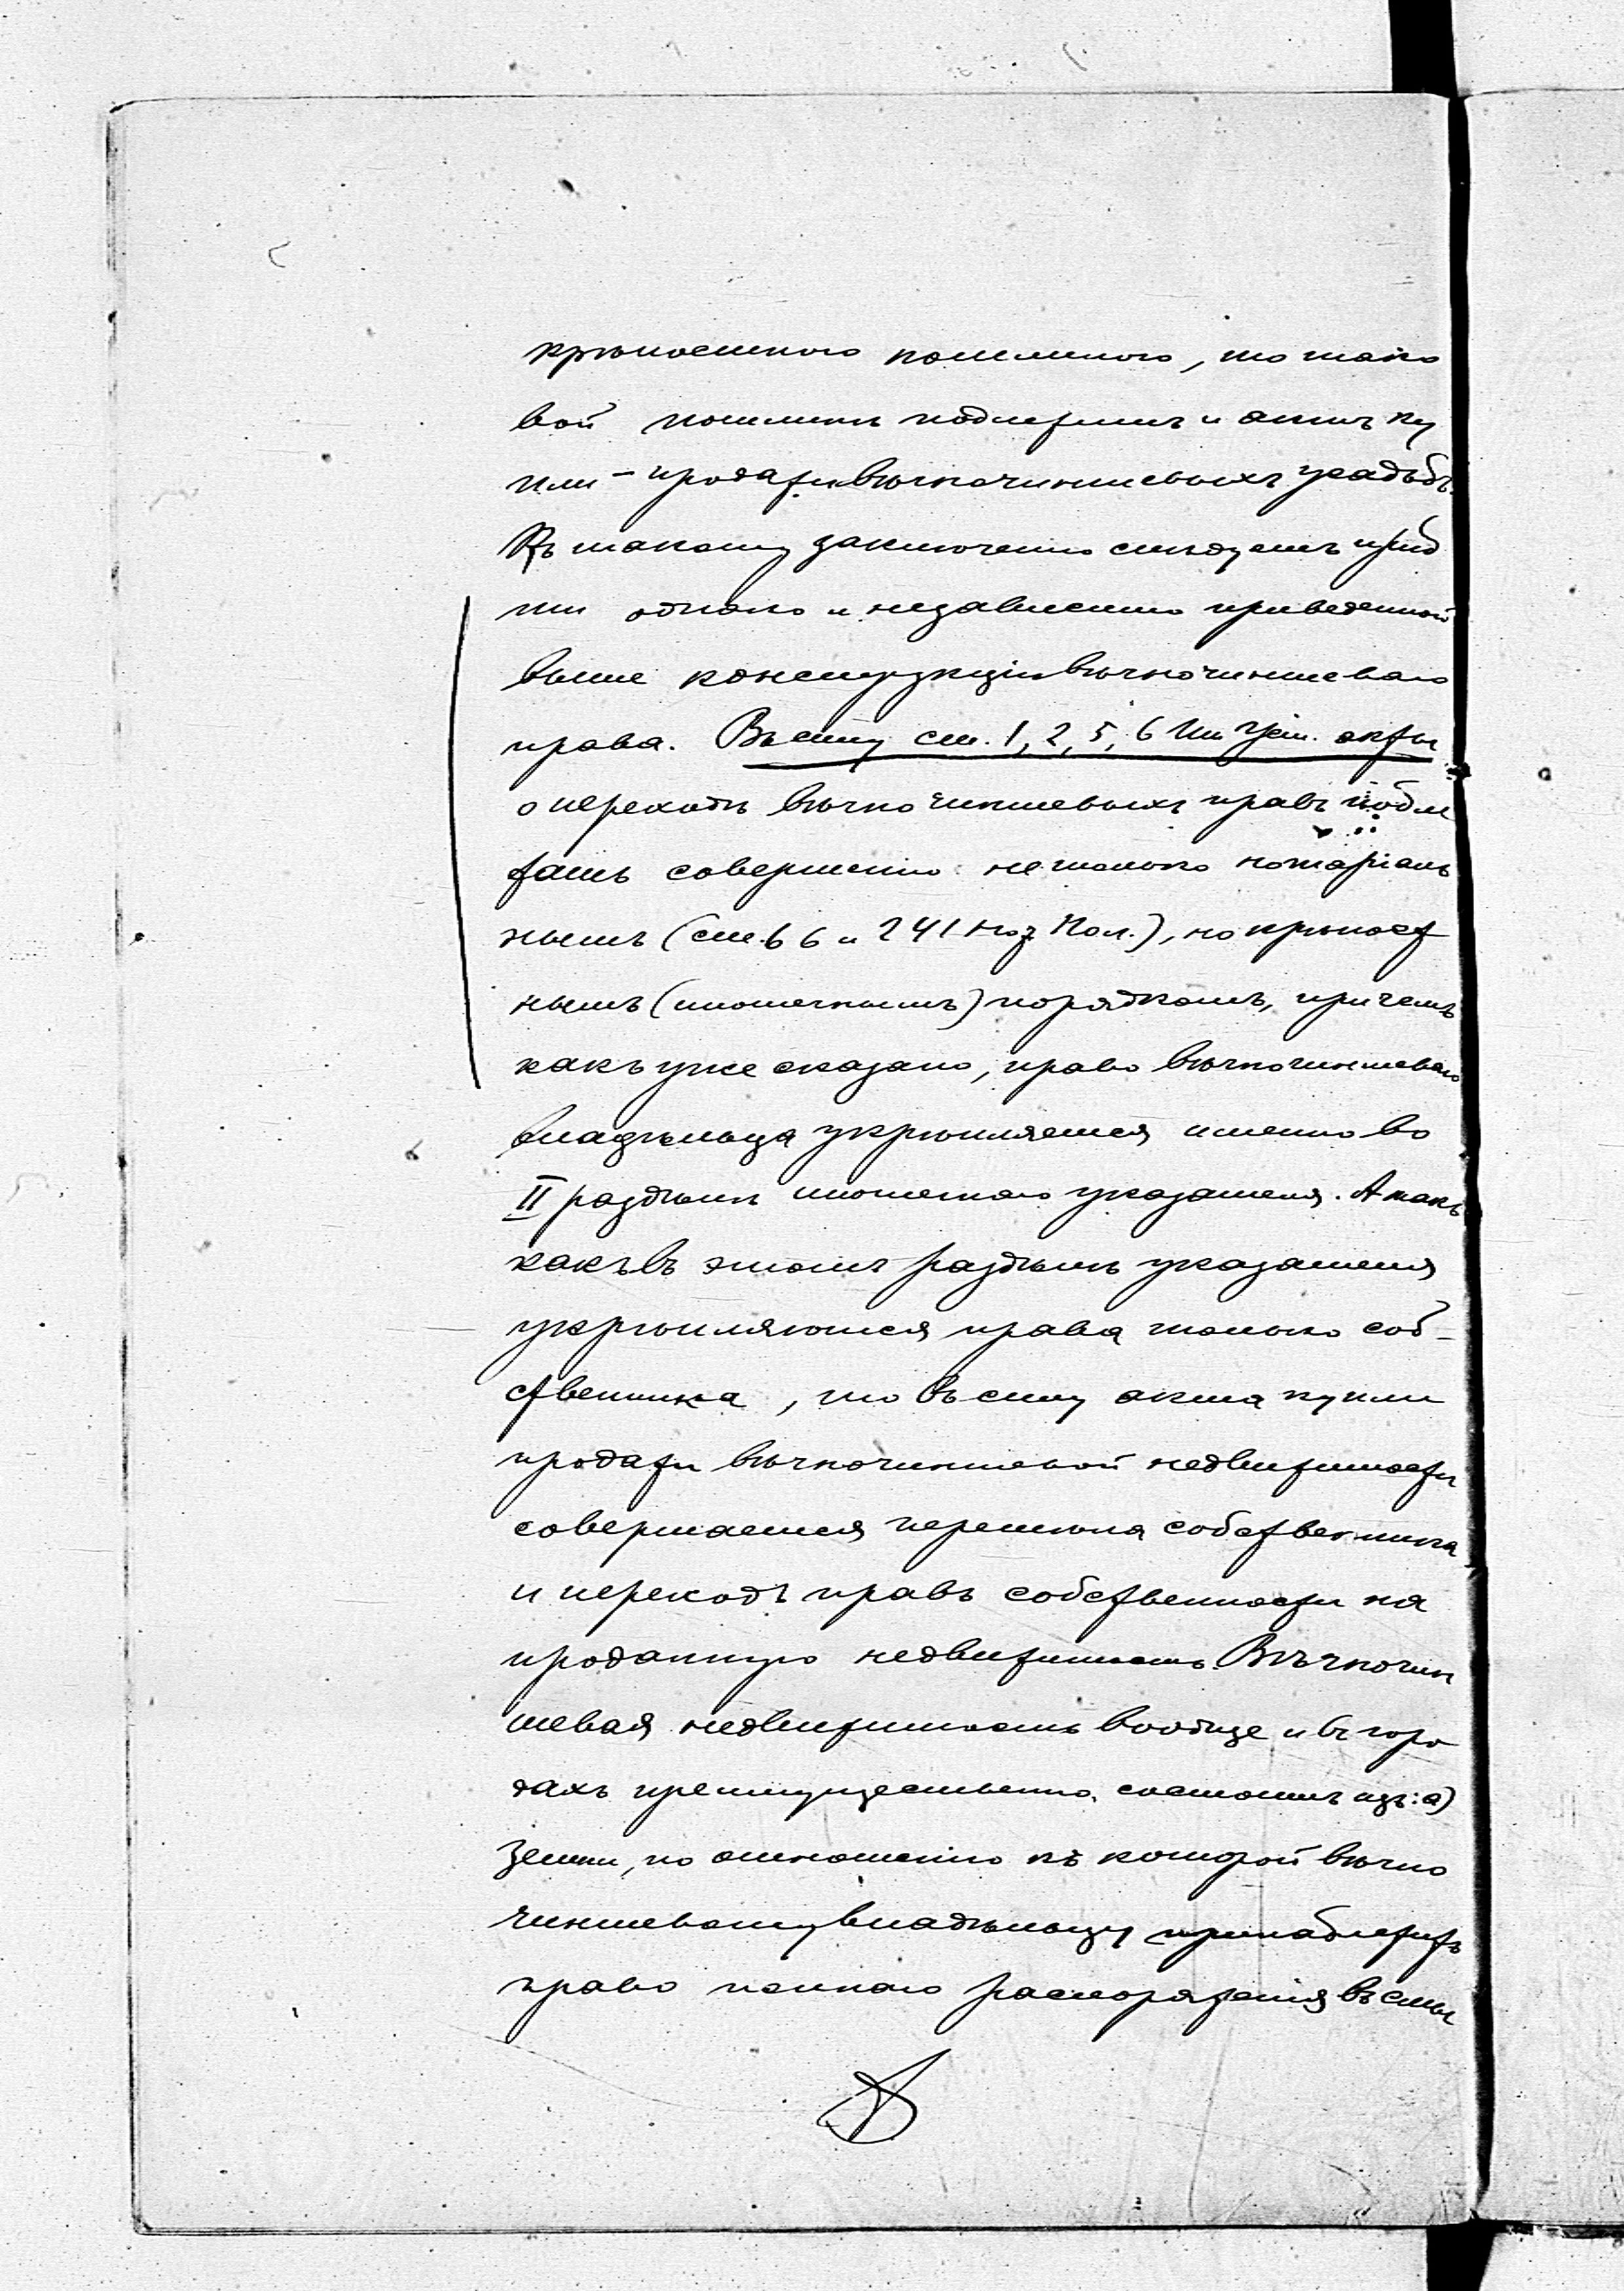 крѣпостного пошлиною, то тако
вой пошлинѣ подлежитъ и актъ ку
пли-продажи вѣчночиншевыхъ усадьбъ.
Къ такому заключенію слѣдуетъ прид
ти однако и независимо приведенной
выше конструкціи вѣчночиншеваго
права. Въ силу ст. 1, 2, 5, 6 Ип Уст. акты
о переходѣ вѣчно чиншевыхъ правъ подле
жатъ совершенію не только нотаріаль
нымъ (ст. 66 и 241 Нот Пол.), но крѣпост
нымъ (ипотечнымъ) порядкомъ, причемъ
какъ уже сказано, право вѣчночиншеваго
владѣльца укрѣпляется именно во
II раздѣлѣ ипотечнаго указателя. А такъ
какъ въ этомъ раздѣлѣ указателя
укрѣпляются права только соб-
ственника, то въ силу акта купли
продажи вѣчночиншевой недвижимости
совершается перемѣна собственника
и переходъ правъ собственности на
проданную недвижимость. Вѣчночин
шевая недвижимость вообще и въ горо
дахъ преимущественно состоитъ изъ: а)
земли, по отношенію къ которой вѣчно
чиншевому владѣльцу принадлежитъ
право полнаго распоряженія въ смы